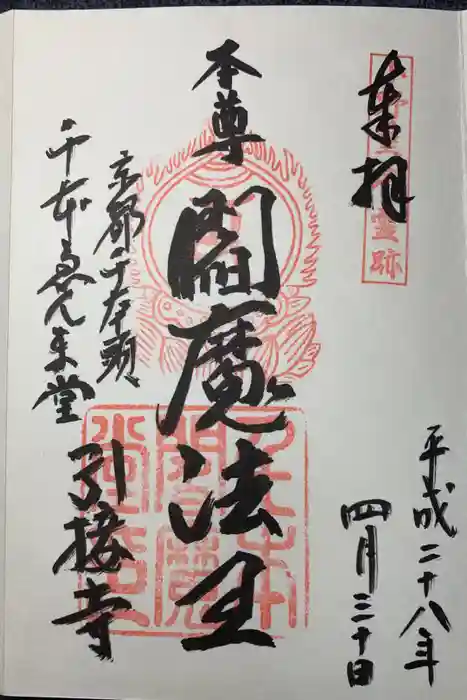 奉拝
平成二十八年
四月三十日
本尊
閻魔法王
京都千本頭
千本ゑんま堂
引接寺